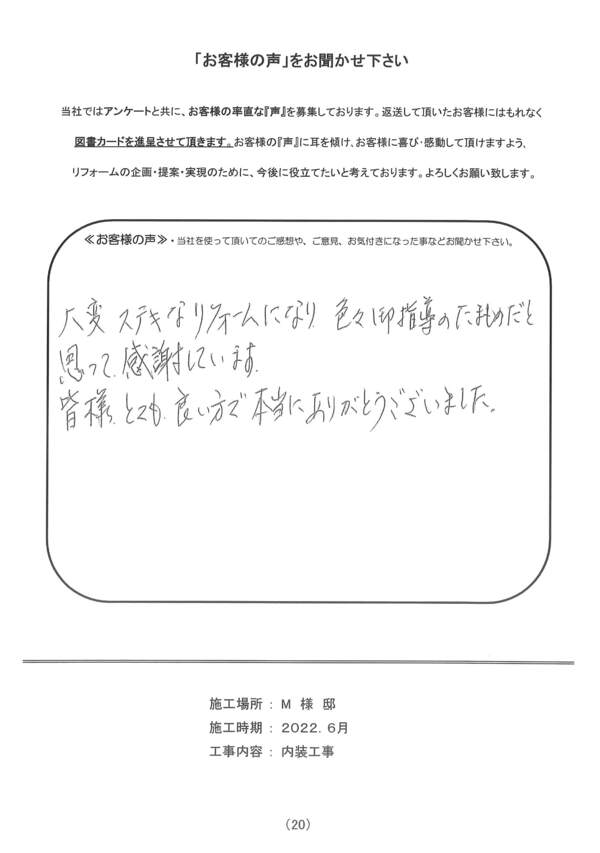 「お客様の声」をお聞かせ下さい
当社ではアンケートと共に、お客様の率直な『声』を募集しております。返送して頂いたお客様にはもれなく
図書カードを進呈させて頂きます。お客様の『声』に耳を傾け、お客様に喜び・感動して頂けますよう、
リフォームの企画・提案・実現のために、今後に役立てたいと考えております。よろしくお願い致します。
≪お客様の声≫・当社を使って頂いてのご感想や、ご意見、お気付きになった事などお聞かせ下さい。
大変 ステキなリフォームになり 色々御指導のたまものだと
思って、感謝しています。
皆様、とても、良い方で 本当にありがとうございました。
施工場所 : M 様 邸
施工時期 : 2022. 6月
工事内容 : 内装工事
(20)